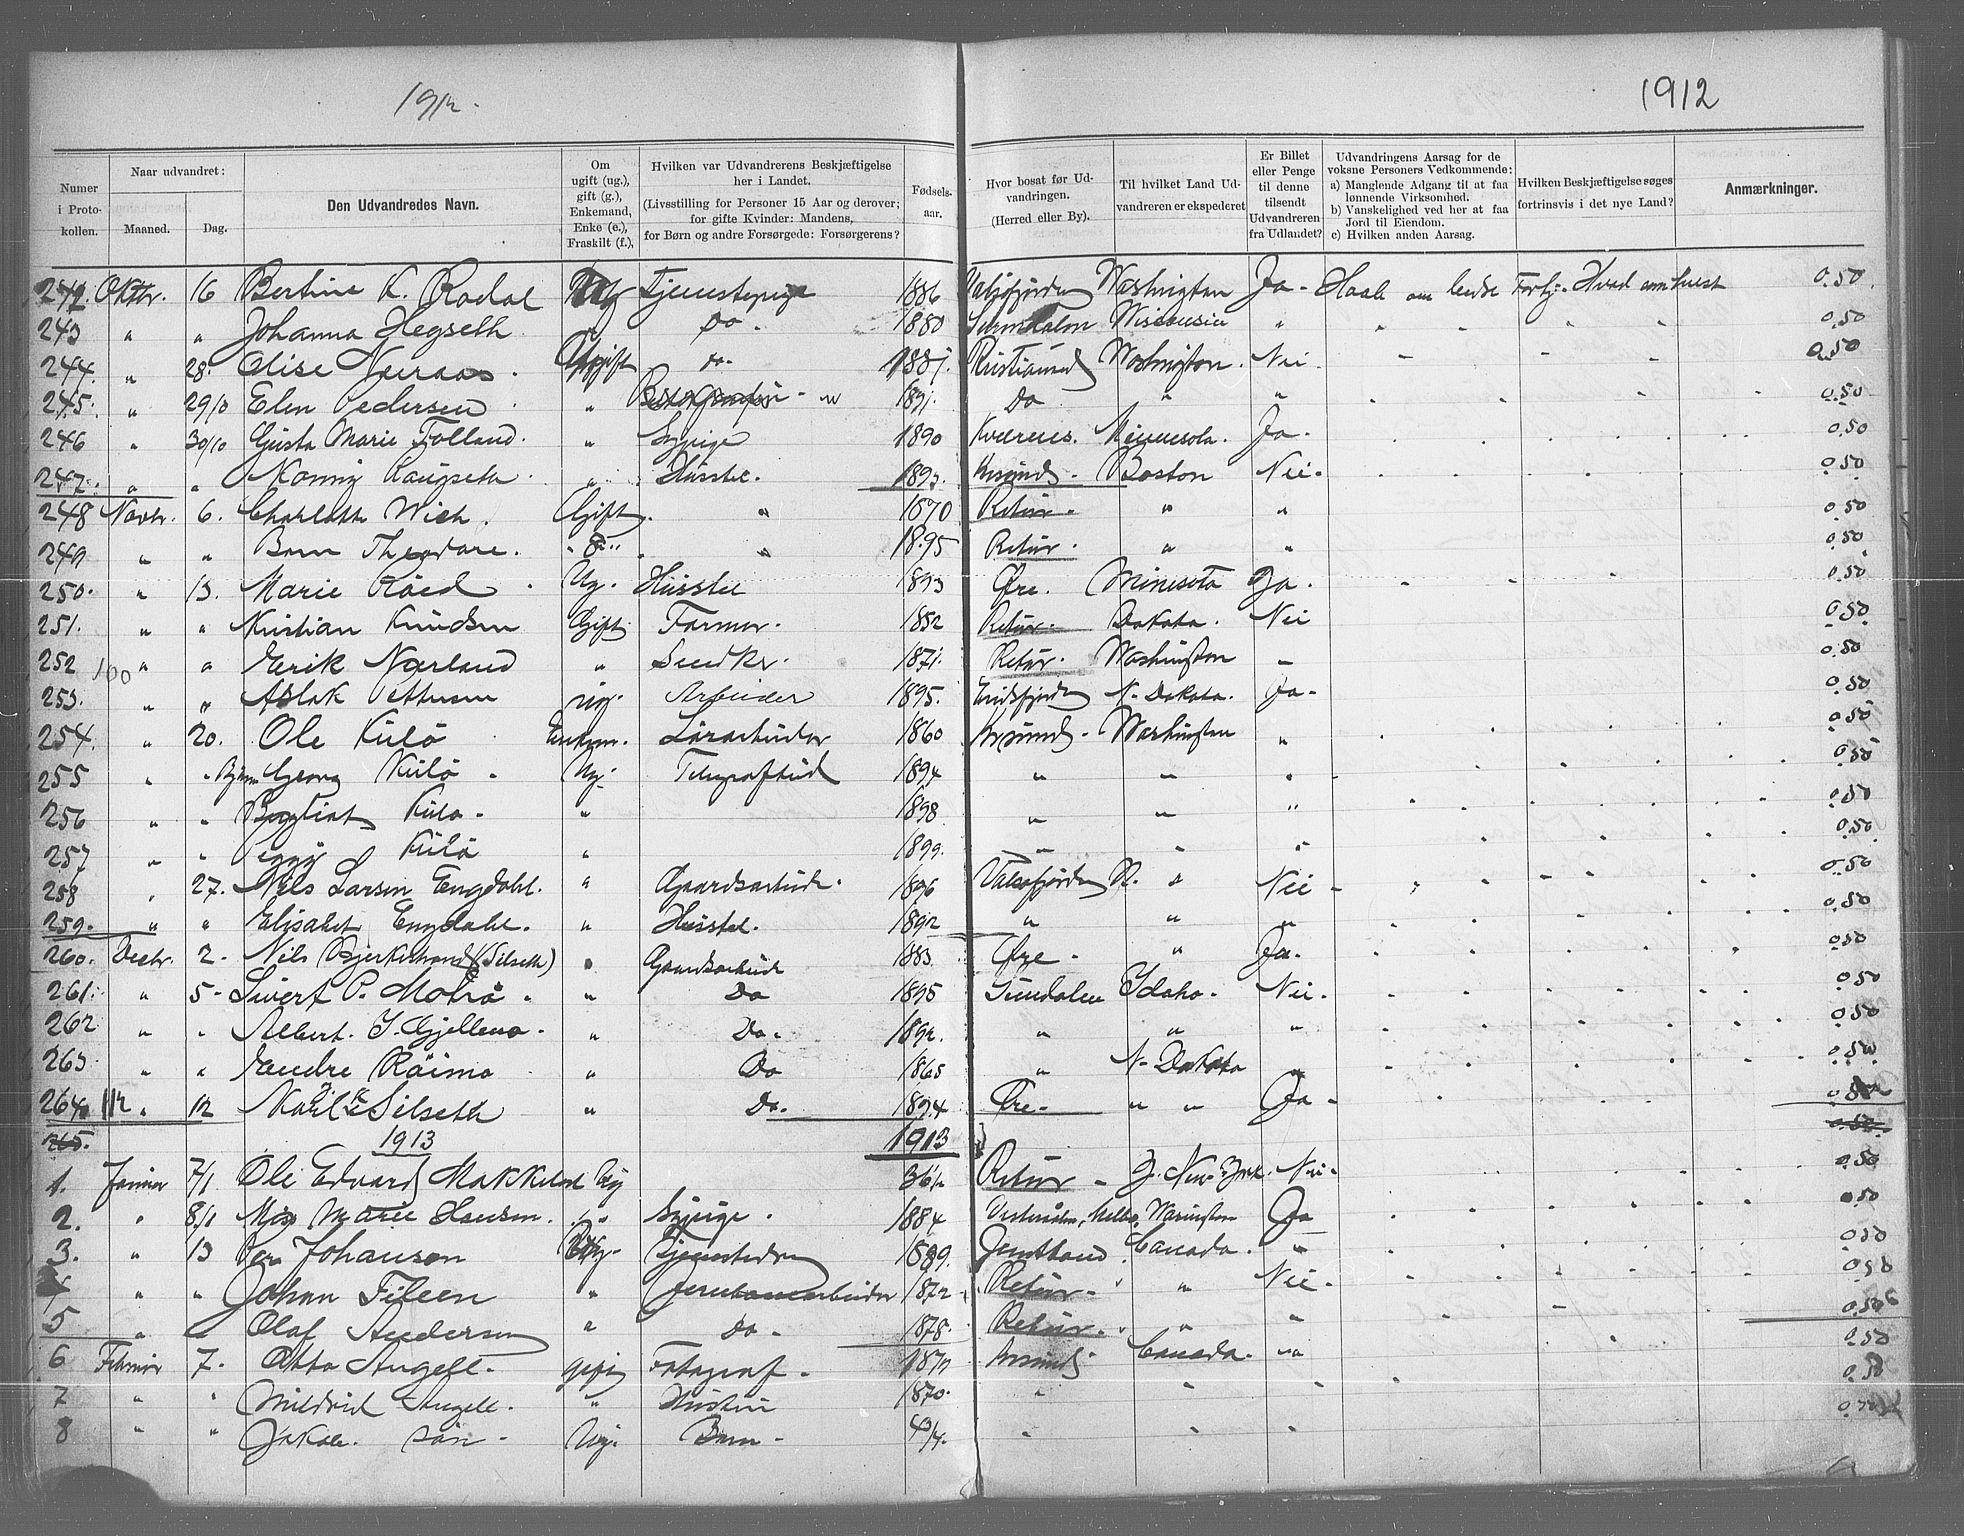 1912. 1912
Numer i Protokollen. Naar udvandret: Maaned. Dag. Den Udvandredes Navn. Om ugift (ug.), gift (g.), Enkemand, Enke (e.), Fraskilt (f.), Hvilken var Udvandrerens Beskjæftigelse her i Landet. (Livsstilling for Personer 15 Aar og derover; for gifte Kvinder: Mandens, for Børn og andre Forsørgede: Forsørgerens? Fødselsaar. Hvor bosat før Udvandringen. (Herred eller By). Til hvilket Land Udvandreren er ekspederet Er Billet eller Penge til denne tilsendt Udvandreren fra Udlandet? Udvandringens Aarsag for de voksne Personers Vedkommende: a) Manglende Adgang til at faa lønnende Virksomhed. b) Vanskelighed ved her at faa Jord til Eiendom. c) Hvilken anden Aarsag. Hvilken Beskjæftigelse søges fortrinsvis i det nye Land? Anmærkninger.
242. Oktbr. 16 Bertine K. Rodal Tjenestepige 1886 Valsøfjorden Washington Ja - Haab om bedre Fortj. - Hvad som helst 0.50
243 " " Johanna Hegseth " Do. 1880 Surendalen Wisconsin " 0.50
244. " 28. Elise Ugift do. 1881. Kristiansund Washington. Nei 0.50
245. " 29/10 Elen Pedersen " 1891. Do " " 0.50
246 " 30/10 Gusta Marie Folland. " Sypige 1890 Kværnes. Minnesota. Ja. 0.50
247. " " Konny Laugseth " Husstel. 1893. Krsund. Boston Nei - 0.50
248 Novbr. 6. Charlotte Wick. Gift. " 1870 Retur. " " 0.50
249 " " Barn Theodore. " 1895 Retur. " " 0.50
250. " 13. Marie Röed Ug. Husstel 1893 Øre. Minesota Ja. 0.50
251. " " Kristian Knudsen Gift Farmer. 1852 Retur. Dakota. Nei 0.50
252 100 " " Eerik Nærland " Snedker. 1871. Retur. Washington " 0.50
253. " " Aslak Pettersen ug. Arbeider 1895. Eridsfjorden N. Dakota. Ja - 0.50
254. " 20. Ole Kulö Enkem. 1860 Krsund. Washington " 0.50
255 " " Georg Kulö. Ug. Telegrafbud 1894 " " " 0.50
256 " " Kulö. " 1898 " " " 0.50
257 " " Peggy Kulö " 1899. " " " 0.50
258 " 27. Nils Larsen Engdahl. " Gaardsarbeide. 1896 Valsøfjorden N. " Nei - 0.50
259. " " Elisabet Engdahl. " Husstel. 1892 " " " 0.50
260. Decbr. 2. Nils Bjerkestrand (Silseth) " Gaardsarbeide 1883 Øre. " Ja. 0.50
261. " 5 - Sivert P. Mohö. " Do 1895 Sundalen Idaho. Nei. 0.50
262 " " Albert. J. Gjellenes. " Do. 1892. " " " 0.50
263 " " Endre Röimo " Do 1865 " N. Dakota " 0.50
264 1/12. " 12 Silseth " Do. 1894 Øre. " " Ja -
265. 1913 1913 0.50
1. Januar 7/1 Ole Edvard Makkelost Ug Retur - New York. Nei - 0.50
2. " 8/1 Miss Marie Hansen. " Sypige. 1884 Vesteraalen, Melbo, Washington Ja 0.50
3. " 13 Per Johanson Ug. Tjenestedr. 1889. Jemtland Canada. " 0.50
4 " " Johan Fileen " Jernbanearbeider 1872 Retur. " Nei - 0.50
5 " " Olaf Andersen " Do. 1878. Retur. " " 0.50
6 Februar 7. Otto Angell. gift Fotograf. Krsund Canada. " 0.50
7 " " Mildrid Angell. " Hustru 1870. " " " 0.50
8 " " Jakob. sön. Ug. Barn. " " "